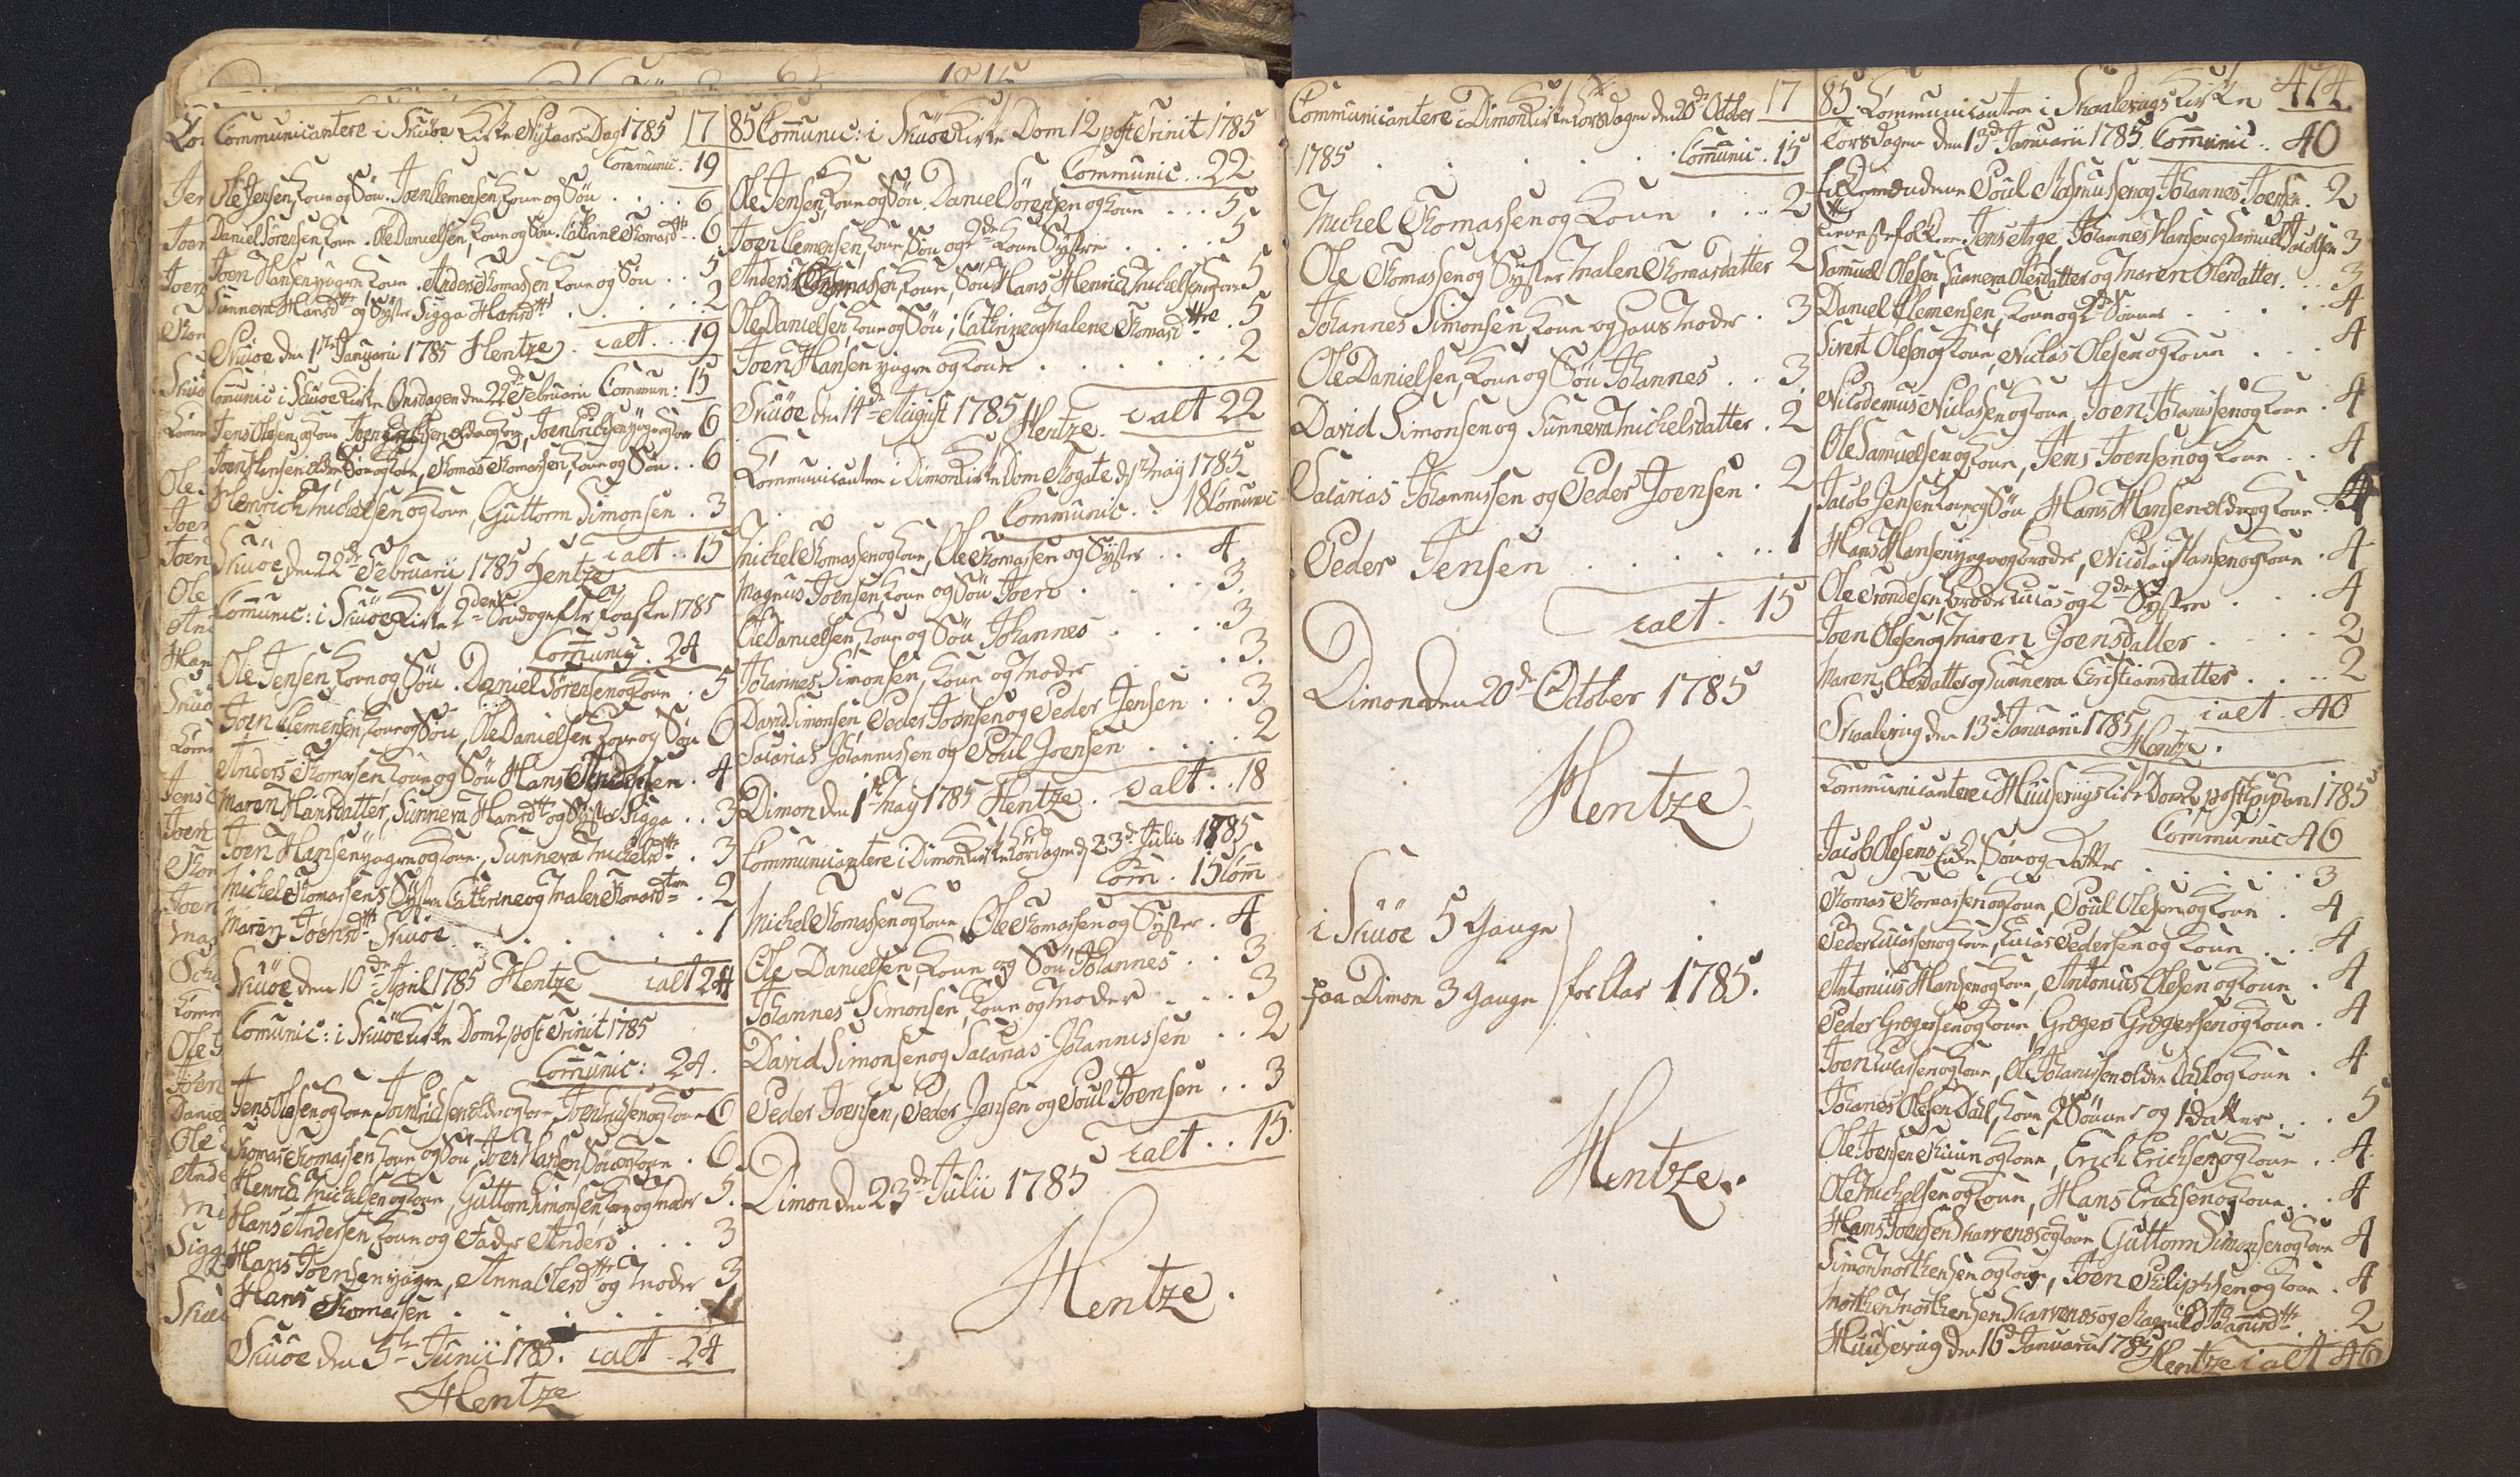 Communicantere i Skuöe Kirke Nytaars Dag 1785 17
Communic: 19
Ole Jensen, Kone og Sön. Joen Clemensen, Kone og Sön . . . . 6
Daniel Sörensen, Kone. Ole Danielsen, Kone og Sön. Cathrine Thomasdttr . 6
Joen Hansen yngre Kone. Anders Thomassen Kone og Sön . . 5
Sunneva Hansdttr og Syster Sigga Hansdttr . . . . 2
Skuöe den 1ste Januarii 1785 Hentze. ialt . . . 19
Comunic i Skuöe Kirke Onsdagen den 22de Februarii Commun: 15
Jens Olesen og Kone Joen Erichsen eldre og Kone, Joen Erichsen yngre og Kone 6
Joen Hansen eldre Sön og Kone, Thomas Thomassen, Kone og Sön . . 6
Henrich Michelsen og Kone, Guttorm Simonsen . 3
Skuöe, den 22de Februarii 1785 Hentze ialt . . 15
Comunic: i Skuöe Kirke 2den Søndag efter Paaske 1785
Comunic . 24
Ole Jensen, Kone og Sön . Daniel Sörensen og Kone . 5
Joen Clemensen, Kone og Sön, Ole Danielsen Kone og Sön 6
Anders Thomassen, Kone og Sön Hans Andersen . 4
Maren Hansdatter, Sunneva Hansdttr og Syster Sigga . . 3
Joen Hansen yngre og Kone., Sunneva Michelsdttr . 3
Michel Thomassens Systre Cathrine og Malene Thomasdttre . 2
Maren Joensdttr Skuöe . . . . . . 1
Skuöe den 10de April 1785 Hentze ialt 24
Comunic: i Skuöe Kirke Dom 2 post Trinit 1785
Comunic: 24.
Jens Olesen og Kone, Joen Erichsen eldre og Kone, Joen Erichsen og Kone 6
Thomas Thomassen Kone og Sön, Joen Hansen Sön og Kone . 6.
Henrich Michelsen og Kone, Guttorm Simonsen, Kone og Moder 5.
Hans Andersen, Kone og Fader Anders . . . 3
Hans Joensen yngre, Anna Olesdttr og Moder 3
Hans Thomassen . . . . . . 1
Skuöe den 5te Junii 1785. ialt . 24
Hentze
85 Comunic: i Skuöe Kirke Dom 12 post Trinit 1785
Communic . . 22
Ole Jensen, Kone og Sön. Daniel Sörensen og Kone . . . 5
Joen Clemensen, Kone, Sön og 2de Kone Systre . . . . 5
Anders Thomassen, Kone, Sön Hans Henrich Michelsen og Kone 5
Ole Danielsen, Kone og Sön, Cathrine og Malene Thomasdttre . 5
Joen Hansen yngre og Kone . . . . . . 2
Skuöe den 14de August 1785 Hentze. ialt 22
Kommunicantere i Dimon Kirke Dom Rogate d 1ste May 1785
Communic . . 18 Comunic
Michel Thomassen og Kone, Ole Thomassen og Syster . . 4
Magnus Joensen, Kone og Sön Joen . . . . 3
Ole Danielsen, Kone og Sön Johannes . . . . 3
Johannes Simonsen, Kone og Moder . . . 3.
David Simonsen, Peder Joensen og Peder Jensen . . 3
Sacarias Johannissen og Poul Joensen . . . . 2
Dimon den 1ste May 1785 Hentze . ialt . . 18
Communicantere i Dimon Kirke Lördagen d 23de Julii 1785
Com . 15 Com
Michel Thomassen og Kone, Ole Thomassen og Syster . 4
Ole Danielsen, Kone og Sön Johannes . . 3
Johannes Simonsen, Kone og Moder . . . 3
David Simonsen og Sacarias Johannissen . . 2
Peder Joensen, Peder Jensen og Poul Joensen . . 3
ialt . . 15.
Dimon den 23de Julii 1785
Hentze.
Communicantere i Dimon Kirke Torsdagen den 20de Octber 17
1785 . . . . . . Comunic . 15
Michel Thomassen og Kone . . . 2
Ole Thomassen og Syster Malen Thomasdatter 2
Johannes Simonsen, Kone og hans Moder . 3
Ole Danielsen, Kone og Sön Johannes . . 3.
David Simonsen og Sunneva Michelsdatter . 2
Sacarias Johannissen og Peder Joensen . 2
Peder Jensen . . . . . 1
ialt . 15
Dimon den 20de October 1785
Hentze
i Skuöe 5 Gange
paa Dimon 3 Gange
for Aar 1785.
Hentze.
85. Kommunicantere i Skaalevigs Kirke 474
Torsdagen den 13de Januarii 1785 Comunic . . 40
Poul Rasmussen og Johannes Joensen . 2
Jens Arge, Johannes Hansen og Samuel Jacobsen 3
Samuel Olesen, Sunneva Olesdatter og Maren Olesdatter . . 3
Daniel Clemensen, Kone og 2de Sönner . . . . 4
Sivert Olesen og Kone, Niclas Olesen og Kone . . . 4
Nicodemus Niclassen og Kone, Joen Johannssen og Kone . 4
Ole Samuelsen og Kone, Jens Joensen og Kone . . 4
Jacob Jensen Kone og Sön, Hans Hansen eldre og Kone . 4
Hans Hansen yngre og Broder, Nicolai Hansen og Kone . 4
Ole Trondesen, Broder Lucas og 2de Systre . . . 4
Joen Olesen og Maren Joensdatter . . . . 2
Maren Olesdatter og Sunneva Christiansdatter . . . . 2
Skaalevig den 13de Januarii 1785 Hentze. ialt . 40
Kommunicantere i Huusevigs Kirke Dom 2 post Epiphan 1785
Communic 46
Jacob Olesens Enke Sön og Datter . . . . . 3
Thomas Thomassen og Kone, Poul Olesen og Kone . 4
Peder Lucassen og Kone, Lucas Pedersen og Kone . . 4
Antonius Hansen og Kone, Antonius Olesen og Kone . 4
Peder Gregersen og Kone, Gregers Gregersen og Kone . 4
Joen Lucassen og Kone, Ole Johannisen eldre Dahl og Kone . 4
Johanes Olesen Dahl, Kone, 2 Sönner og 1 datter . . . 5
Ole Joensen Skuun og Kone, Erich Erichsen og Kone . . 4
Ole Michelsen og Kone, Hans Erichsen og Kone . . 4
Hans Joensen Skarvenes og Kone Guttorm Simonsen og Kone 4
Simon Morthensen og Kone, Joen Philipsen og Kone . 4
Morthen Morthensen Skarvenes og . . 2
Huusevig den 16de Januarii 1785 Hentze ialt 46